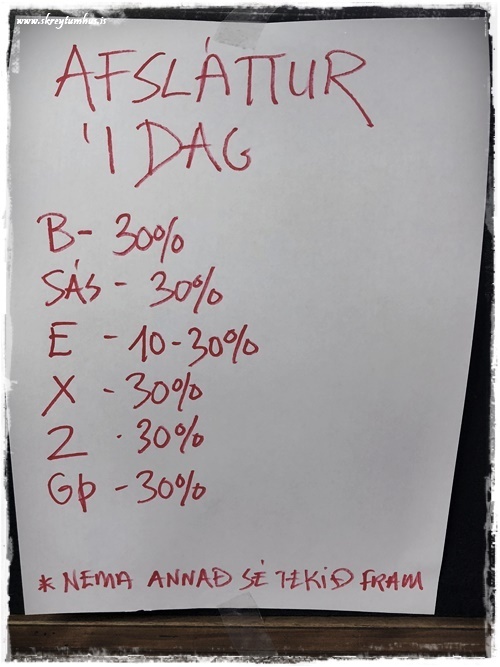 www.skreytumhus.is
AFSLÁTTUR
Í DAG
B- 30%
SÁS - 30%
E - 10-30%
X - 30%
Z - 30%
Gp - 30%
* NEMA ANNAÐ SÉ TEKIÐ FRAM